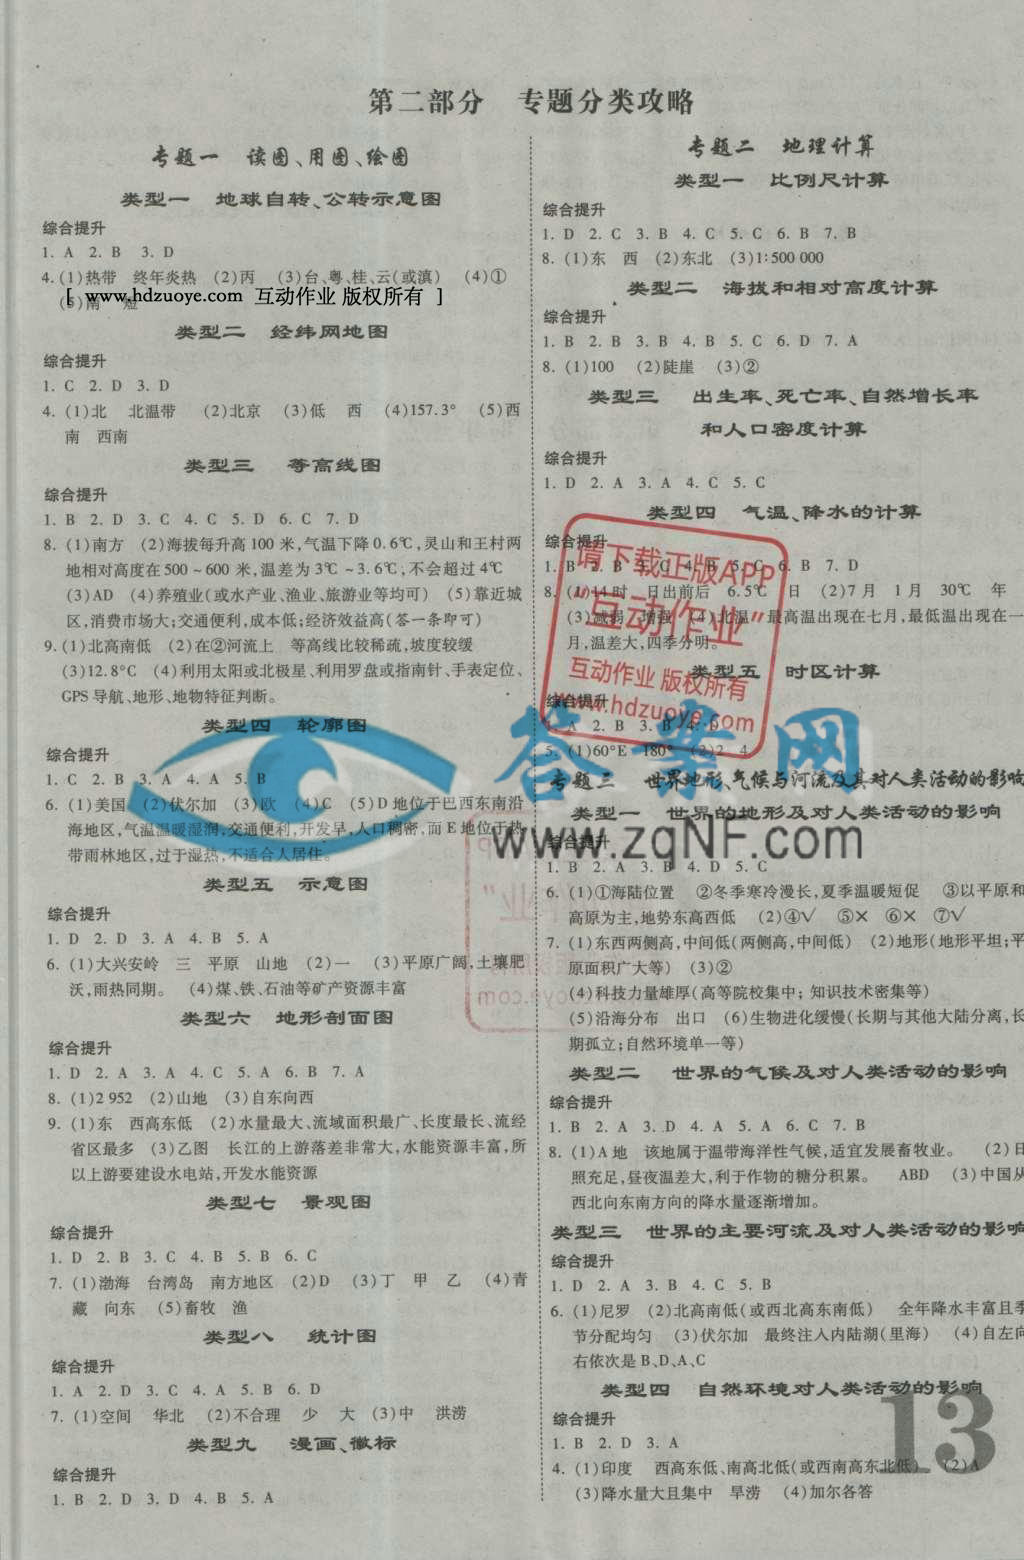 第二部分 专题分类攻略
专题一 读图、用图、绘图
类型一 地球自转、公转示意图
综合提升
1. A 2. B 3. D
4. (1)热带 终年炎热 (2)丙 (3)台、粤、桂、云(或滇) (4)①
[ www.hdzuoye.com 互动作业 版权所有 ]
(5)南 短
类型二 经纬网地图
综合提升
1. C 2. D 3. D
4. (1)北 北温带 (2)北京 (3)低 西 (4)157.3° (5)西
南 西南
类型三 等高线图
综合提升
1. B 2. D 3. C 4. C 5. D 6. C 7. D
8. (1)南方 (2)海拔每升高 100 米,气温下降 0.6℃,灵山和王村两
地相对高度在 500～600 米,温差为 3℃～3.6℃,不会超过 4℃
(3)AD (4)养殖业(或水产业、渔业、旅游业等均可) (5)靠近城
区,消费市场大;交通便利,成本低;经济效益高(答一条即可)
9. (1)北高南低 (2)在②河流上 等高线比较稀疏,坡度较缓
(3)12.8°C (4)利用太阳或北极星、利用罗盘或指南针、手表定位、
GPS 导航、地形、地物特征判断。
类型四 轮廓图
综合提升
1. C 2. B 3. A 4. A 5. B
6. (1)美国 (2)伏尔加 (3)欧 (4)C (5)D 地位于巴西东南沿
海地区,气温温暖湿润,交通便利,开发早,人口稠密,而 E 地位于热
带雨林地区,过于湿热,不适合人居住。
类型五 示意图
综合提升
1. D 2. D 3. A 4. B 5. A
6. (1)大兴安岭 三 平原 山地 (2)一 (3)平原广阔,土壤肥
沃,雨热同期。 (4)煤、铁、石油等矿产资源丰富
类型六 地形剖面图
综合提升
1. D 2. A 3. A 4. C 5. A 6. B 7. A
8. (1)2 952 (2)山地 (3)自东向西
9. (1)东 西高东低 (2)水量最大、流域面积最广、长度最长、流经
省区最多 (3)乙图 长江的上游落差非常大,水能资源丰富,所
以上游要建设水电站,开发水能资源
类型七 景观图
综合提升
1. D 2. B 3. C 4. B 5. B 6. C
7. (1)渤海 台湾岛 南方地区 (2)D (3)丁 甲 乙 (4)青
藏 向东 (5)畜牧 渔
类型八 统计图
综合提升
1. A 2. D 3. C 4. C 5. B 6. D
7. (1)空间 华北 (2)不合理 少 大 (3)中 洪涝
类型九 漫画、徽标
综合提升
1. B 2. D 3. B 4. D 5. A
专题二 地理计算
类型一 比例尺计算
综合提升
1. D 2. C 3. B 4. C 5. C 6. B 7. B
8. (1)东 西 (2)东北 (3)1:500 000
类型二 海拔和相对高度计算
综合提升
1. B 2. B 3. B 4. B 5. C 6. D 7. A
8. (1)100 (2)陡崖 (3)②
类型三 出生率、死亡率、自然增长率
和人口密度计算
综合提升
1. D 2. A 3. A 4. C 5. C
类型四 气温、降水的计算
综合提升
1. B 2. B 3. C 4. B 5. C 6. B 7. D
8. (1)14 时 日出前后 6.5℃ 日 (2)7 月 1 月 30℃ 年
(3)减弱 增强 (4)北温 最高温出现在七月,最低温出现在一
月,温差大,四季分明。
类型五 时区计算
综合提升
1. A 2. B 3. B 4. D
5. (1)60°E 180° (2)2 4
专题三 世界地形、气候与河流及其对人类活动的影响
类型一 世界的地形及对人类活动的影响
综合提升
1. B 2. A 3. B 4. D 5. C
6. (1)①海陆位置 ②冬季寒冷漫长,夏季温暖短促 ③以平原和
高原为主,地势东高西低 (2)④√ ⑤× ⑥× ⑦√
7. (1)东西两侧高,中间低(两侧高,中间低) (2)地形(地形平坦;平
原面积广大等) (3)②
(4)科技力量雄厚(高等院校集中; 知识技术密集等)
(5)沿海分布 出口 (6)生物进化缓慢(长期与其他大陆分离,长
期孤立;自然环境单一等)
类型二 世界的气候及对人类活动的影响
综合提升
1. B 2. A 3. D 4. A 5. A 6. C 7. B
8. (1)A 地 该地属于温带海洋性气候,适宜发展畜牧业。 (2)日
照充足,昼夜温差大,利于作物的糖分积累。 ABD (3)中国从
西北向东南方向的降水量逐渐增加。
类型三 世界的主要河流及对人类活动的影响
综合提升
1. D 2. A 3. B 4. C 5. B
6. (1)尼罗 (2)北高南低(或西北高东南低) 全年降水丰富且季
节分配均匀 (3)伏尔加 最终注入内陆湖(里海) (4)自左向
右依次是 B、D、A、C
类型四 自然环境对人类活动的影响
综合提升
1. B 2. D 3. A
4. (1)印度 西高东低、南高北低(或西南高东北低) (2)A
(3)降水量大且集中 旱涝 (4)加尔各答
13
请下载正版APP
“互动作业”
互动作业 版权所有
www.hdzuoye.com
答案网
www.zqNF.com